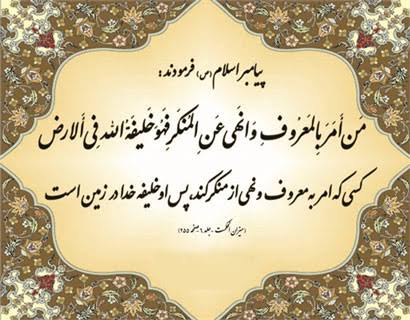 پیامبر اسلام (ص) فرمودند:
مَن أَمَرَ بِالمَعرُوفِ وَانَهی عَنِ المُنکَرِ فَهُوَ خَلیفَةُ الله فِی أَلارض
کسی که امر به معروف و نهی از منکر کند، پس او خلیفه خدا در زمین است
(میزان الحکمت - جلد ۶ صفحه ۲۵۵)